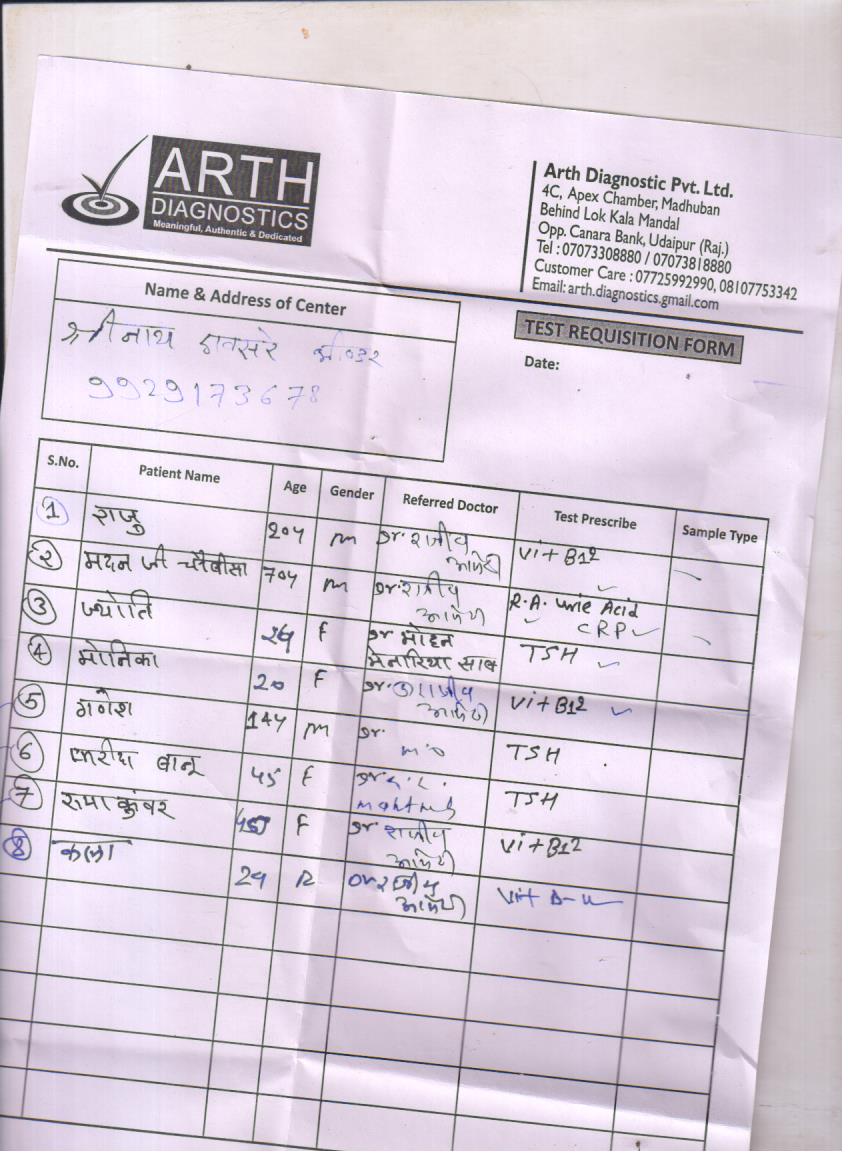 ARTH
DIAGNOSTICS
Meaningful, Authentic & Dedicated
Arth Diagnostic Pvt. Ltd.
4C, Apex Chamber, Madhuban
Behind Lok Kala Mandal
Opp. Canara Bank, Udaipur (Raj.)
Tel : 07073308880 / 07073818880
Customer Care : 07725992990, 08107753342
Email: arth.diagnostics.gmail.com
Name & Address of Center
श्रीनाथ
9929173678
TEST REQUISITION FORM
Date:
S.No. Patient Name Age Gender Referred Doctor Test Prescribe Sample Type
1 राजु 20y M Dr. राजीव Vit B12
2 मदन जी चौबीसा 70y M Dr. राजीव R.A. Uric Acid
CRP
3 ज्योति 24 F Dr मोहन TSH
मेनारिया साब
4 मोनिका 20 F Dr. राजीव Vit B12
5 गणेश 14y M Dr. TSH
6 बानू 45 F Dr. TSH
7 रुमा कुंवर F Dr राजीव Vit B12
8 कला 24 Dr राजीव Vit